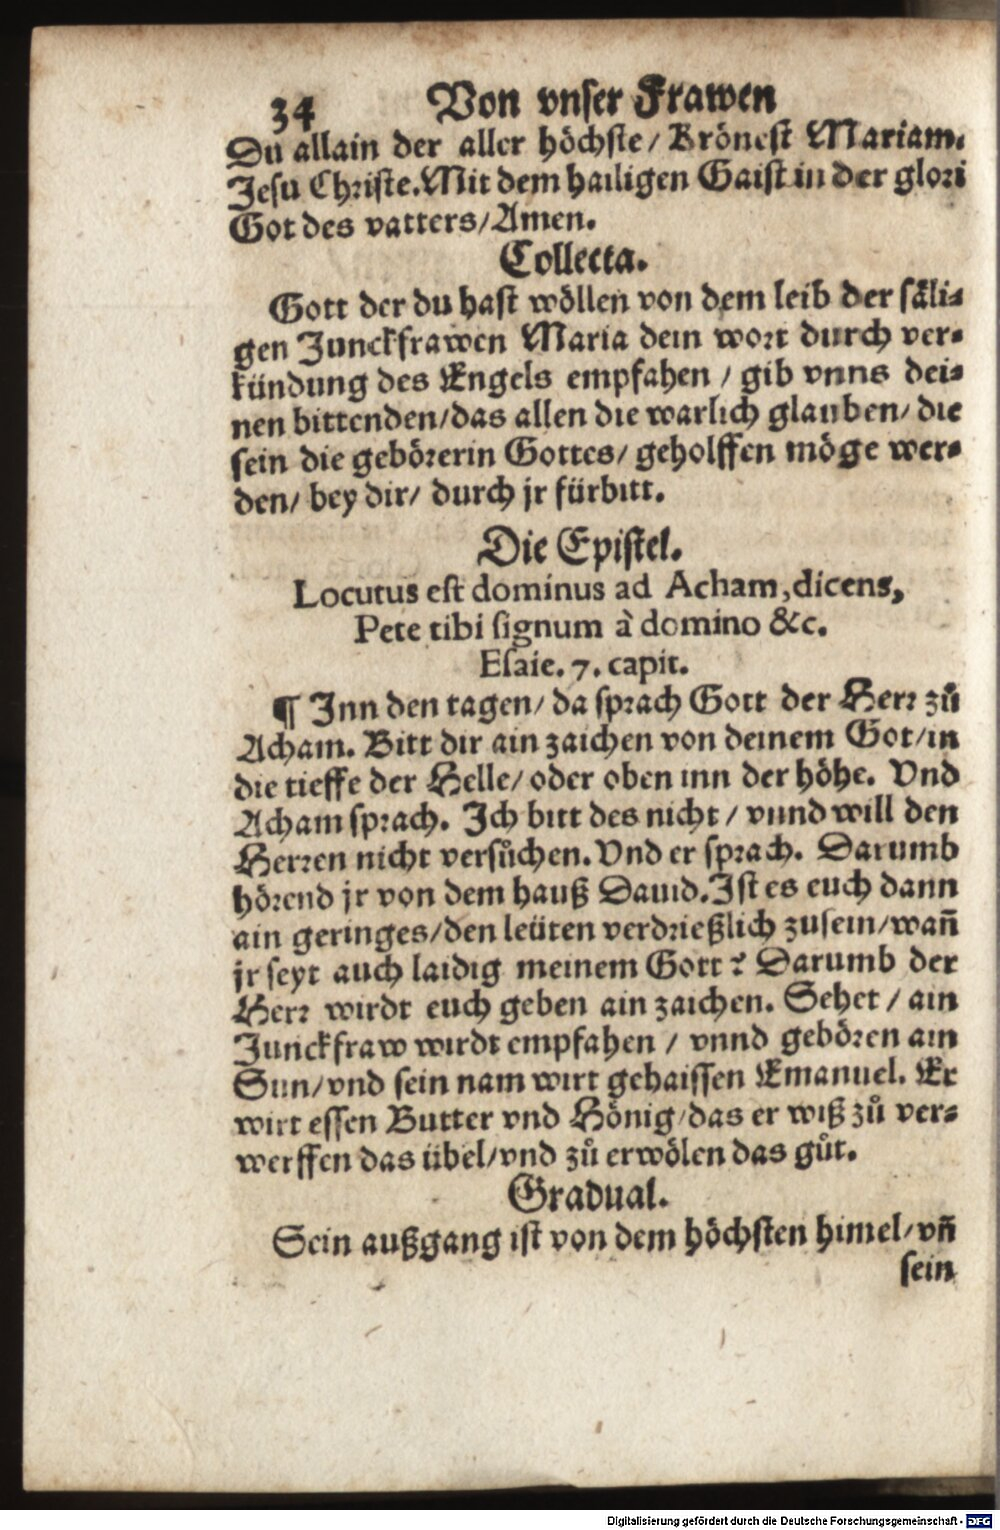 34 Von vnser Frawen
Du allain der aller höchste/ Krönest Mariam.
Jesu Christe. Mit dem hailigen Gaist in der glori
Got des vatters/ Amen.
Collecta.
Gott der du hast wöllen von dem leib der säli⸗
gen Junckfrawen Maria dein wort durch ver⸗
kündung des Engels empfahen / gib vnns dei⸗
nen bittenden/ das allen die warlich glauben/ die
sein die gebörerin Gottes/ geholffen möge wer⸗
den/ bey dir/ durch jr fürbitt.
Die Epistel.
Locutus est dominus ad Acham, dicens,
Pete tibi signum à domino &c.
Esaie. 7. capit.
¶ Inn den tagen/ da sprach Gott der Herr zů
Acham. Bitt dir ain zaichen von deinem Got/ in
die tieffe der Helle/ oder oben inn der höhe. Vnd
Acham sprach. Ich bitt des nicht / vnnd will den
Herren nicht versůchen. Vnd er sprach. Darumb
hörend jr von dem hauß Dauid. Ist es euch dann
ain geringes/ den leüten verdrießlich zusein/ wañ
jr seyt auch laidig meinem Gott? Darumb der
Herr wirdt euch geben ain zaichen. Sehet / ain
Junckfraw wirdt empfahen / vnnd gebören ain
Sun/ vnd sein nam wirt gehaissen Emanuel. Er
wirt essen Butter vnd Hönig/ das er wiß zů ver⸗
werffen das übel/ vnd zů erwölen das gůt.
Gradual.
Sein außgang ist von dem höchsten himel/ vñ
sein
Digitalisierung gefördert durch die Deutsche Forschungsgemeinschaft - DFG